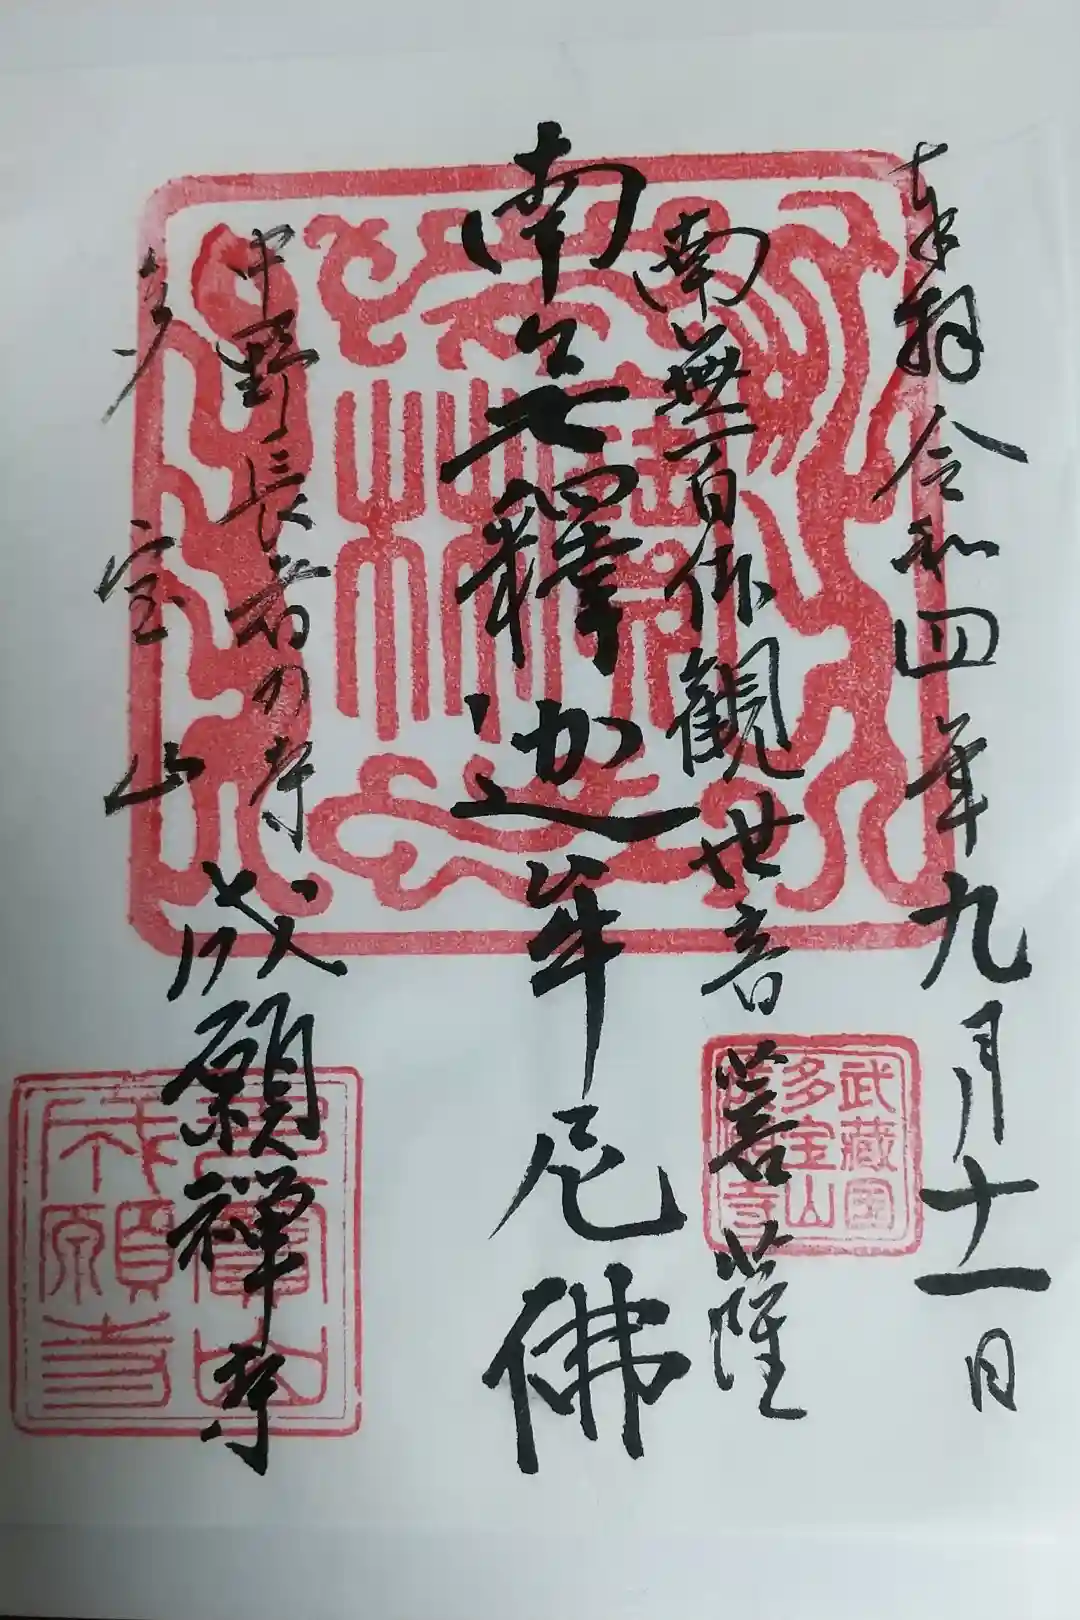 奉拝 令和四年九月十一日
南無百体観世音菩薩
南無釋迦牟尼佛
中野長者の寺 成願禅寺
多宝山
武蔵国
多宝山
成願寺
多寶山
成願寺